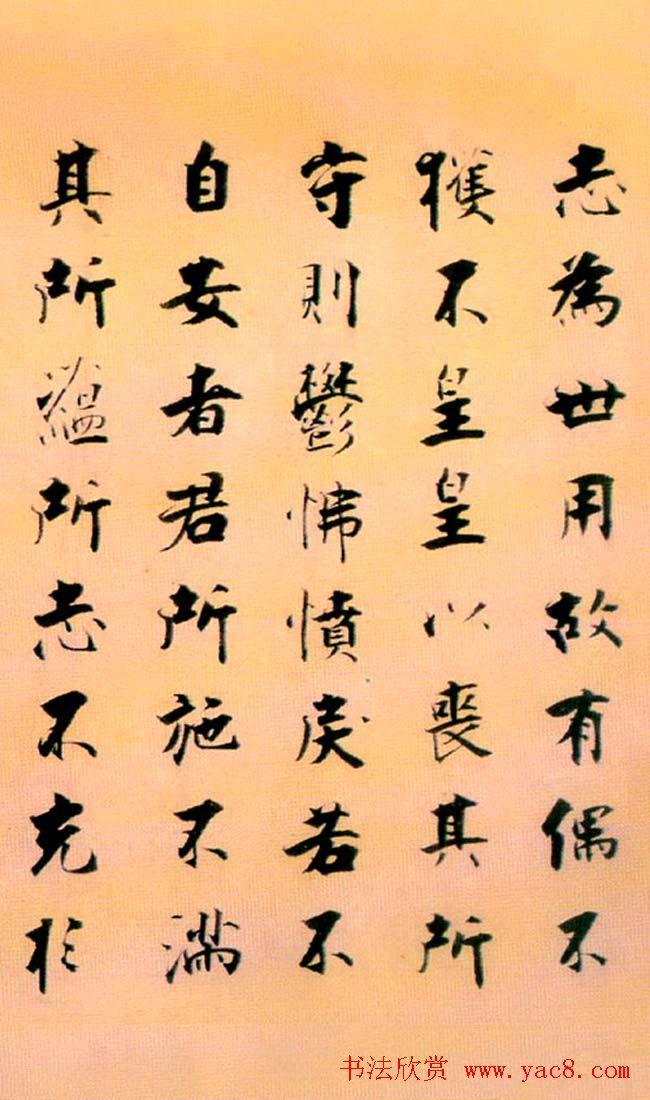 志為世用故有偶不
獲不皇皇以喪其所
守則鬱怫憤戾若不
自安者君所施不滿
其所蘊所志不充於
书法欣赏 www.yac8.com